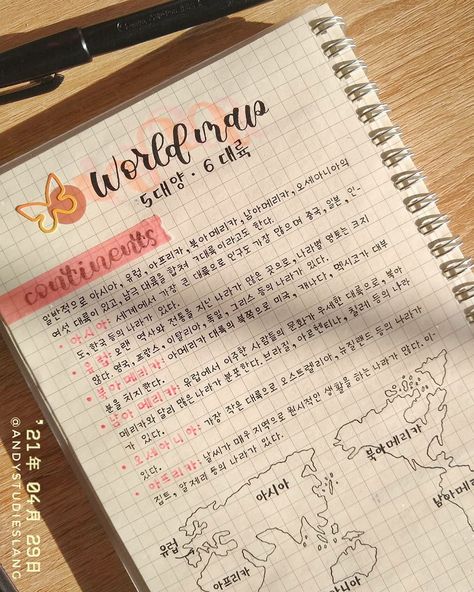 World map
5대양·6대륙
continents
일반적으로 아시아, 유럽, 아프리카, 북아메리카, 남아메리카, 오세아니아의
여섯 대륙이 있고, 남극 대륙을 합쳐 7대륙이라고도 한다.
• 아시아: 세계에서 가장 큰 대륙으로 인구도 가장 많으며 중국, 일본, 인-
도, 한국 등의 나라가 있다.
• 유럽: 오랜 역사와 전통을 지닌 나라가 많은 곳으로, 나라별 영토는 크지
않다. 영국, 프랑스, 이탈리아, 독일, 그리스 등의 나라가 있다.
• 북아메리카: 아메리카 대륙의 북쪽으로 미국, 캐나다, 멕시코가 대부
분을 차지한다.
• 남아메리카: 유럽에서 이주한 사람들의 문화가 우세한 대륙으로, 북아
메리카와 달리 많은 나라가 분포한다. 브라질, 아르헨티나, 칠레 등의 나라
가 있다.
• 오세아니아: 가장 작은 대륙으로 오스트렐리아, 뉴질랜드 등의 나라가
있다.
• 아프리카: 날씨가 매우 지역으로 원시적인 생활을 하는 나라가 많다. 이
집트, 알제리 등의 나라가 있다.
아시아
유럽
아프리카
북아메리카
남아메리
아니아
'21年 04月 29日
@ANDYSTUDIESLANG